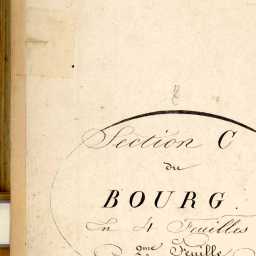 Section C
du
BOURG
En 4 Feuilles
Feuille